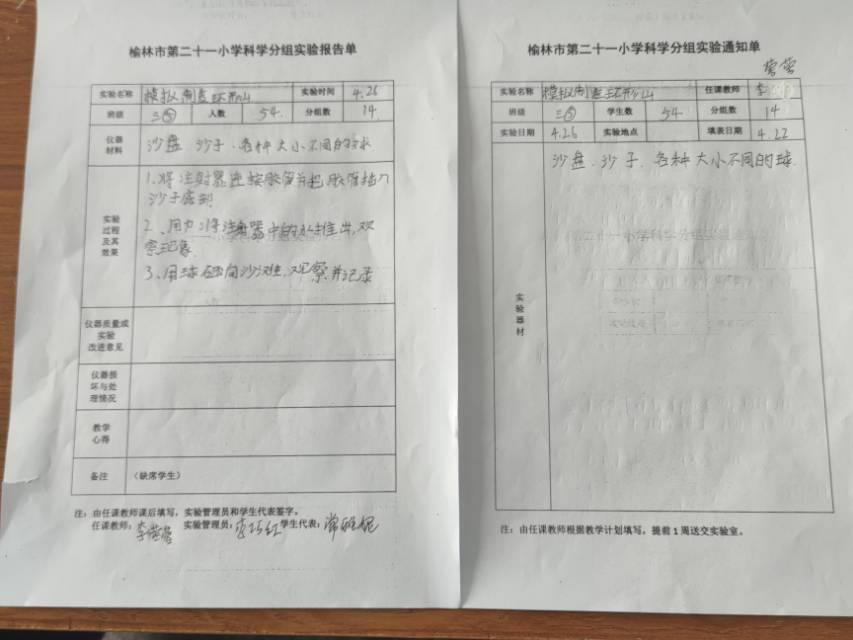 榆林市第二十一小学科学分组实验报告单
实验名称 模拟制造环形山 实验时间 4.26
班级 三⑤ 人数 54. 分组数 14.
仪器
材料
沙盘 沙子、各种大小不同的球
实验
过程
及其
效果
1.将注射器连接胶管并把胶管插入
沙子底部
2、用力将注射器中的水推出,观
察现象
3、用球砸向沙堆,观察并记录
仪器质量或
实验
改进意见
仪器损
坏与处
理情况
教学
心得
备注 (缺席学生)
注:由任课教师课后填写,实验管理员和学生代表签字。
任课教师: 实验管理员: 学生代表:
榆林市第二十一小学科学分组实验通知单
实验名称 模拟制造环形山 任课教师 李
班级 三⑤ 学生数 54 分组数 14
实验日期 4.26 实验地点 填表日期 4.22
实
验
器
材
沙盘、沙子、各种大小不同的球.
注:由任课教师根据教学计划填写,提前1周送交实验室。